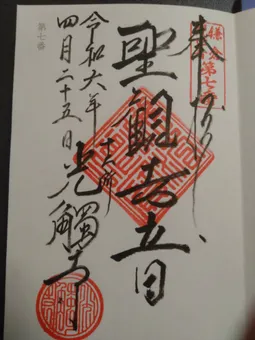 鎌倉
第七番
奉拝
聖觀世音
令和六年
四月二十五日
十二所
光觸寺
第七番